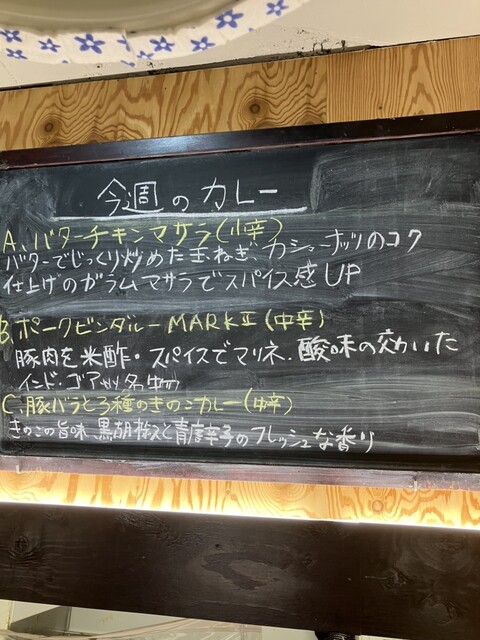 今週のカレー
A、バターチキンマサラ(小辛)
バターでじっくり炒めた玉ねぎ、カシューナッツのコク
仕上げのガラムマサラでスパイス感UP
B、ポークビンダルーMARKⅡ(中辛)
豚肉を米酢・スパイスでマリネ、酸味の効いた
インド・ゴア州名物
C、豚バラと3種のきのこカレー(中辛)
きのこの旨味、黒胡椒と青唐辛子のフレッシュな香り